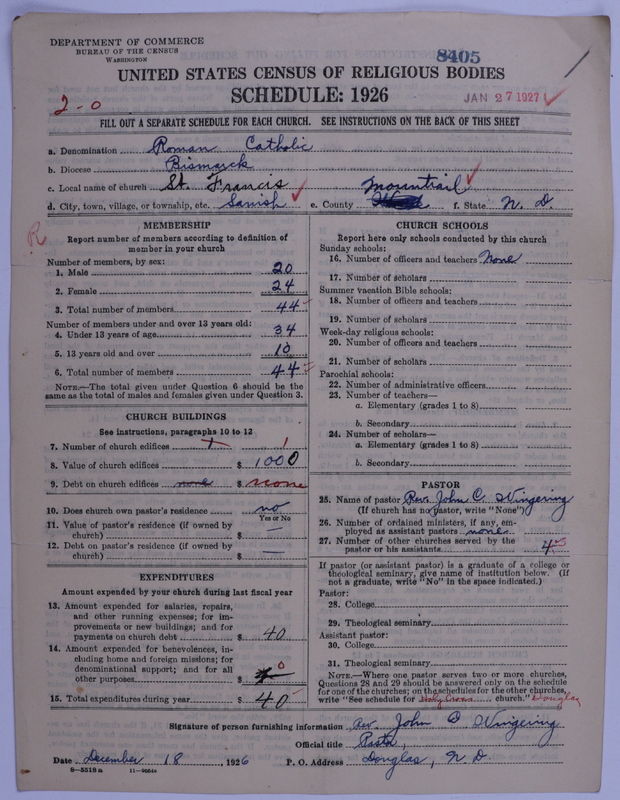 DEPARTMENT OF COMMERCE
BUREAU OF THE CENSUS
WASHINGTON
8405
UNITED STATES CENSUS OF RELIGIOUS BODIES
SCHEDULE: 1926
JAN 27 1927
2-0
FILL OUT A SEPARATE SCHEDULE FOR EACH CHURCH. SEE INSTRUCTIONS ON THE BACK OF THIS SHEET
a. Denomination Roman Catholic
b. Diocese Bismarck
c. Local name of church St. Francis Mountrail
d. City, town, village, or township, etc. Sanish e. County f. State N. D.
R
MEMBERSHIP
Report number of members according to definition of
member in your church
Number of members, by sex:
1. Male 20
2. Female 24
3. Total number of members 44
Number of members under and over 13 years old:
4. Under 13 years of age 34
5. 13 years old and over 10
6. Total number of members 44
NOTE.—The total given under Question 6 should be the
same as the total of males and females given under Question 3.
CHURCH BUILDINGS
See instructions, paragraphs 10 to 12
7. Number of church edifices 1
8. Value of church edifices $ 1000
9. Debt on church edifices none $ none
10. Does church own pastor's residence no
Yes or No
11. Value of pastor's residence (if owned by
church) $ —
12. Debt on pastor's residence (if owned by
church) $ —
EXPENDITURES
Amount expended by your church during last fiscal year
13. Amount expended for salaries, repairs,
and other running expenses; for im-
provements or new buildings; and for
payments on church debt $ 40
14. Amount expended for benevolences, in-
cluding home and foreign missions; for
denominational support; and for all
other purposes $ 0
15. Total expenditures during year $ 40
CHURCH SCHOOLS
Report here only schools conducted by this church
Sunday schools:
16. Number of officers and teachers None
17. Number of scholars
Summer vacation Bible schools:
18. Number of officers and teachers
19. Number of scholars
Week-day religious schools:
20. Number of officers and teachers
21. Number of scholars
Parochial schools:
22. Number of administrative officers
23. Number of teachers—
a. Elementary (grades 1 to 8)
b. Secondary
24. Number of scholars—
a. Elementary (grades 1 to 8)
b. Secondary
PASTOR
25. Name of pastor Rev. John C. Wingering
(If church has no pastor, write "None")
26. Number of ordained ministers, if any, em-
ployed as assistant pastors none
27. Number of other churches served by the
pastor or his assistants 4
If pastor (or assistant pastor) is a graduate of a college or
theological seminary, give name of institution below. (If
not a graduate, write "No" in the space indicated.)
Pastor:
28. College
29. Theological seminary
Assistant pastor:
30. College
31. Theological seminary
NOTE.—Where one pastor serves two or more churches,
Questions 28 and 29 should be answered only on the schedule
for one of the churches; on the schedules for the other churches,
write "See schedule for Holy Cross church." Douglas
Signature of person furnishing information Rev. John C Wingering
Official title Pastor,
Date December 18, 1926 P. O. Address Douglas, N. D.
8-5518 a